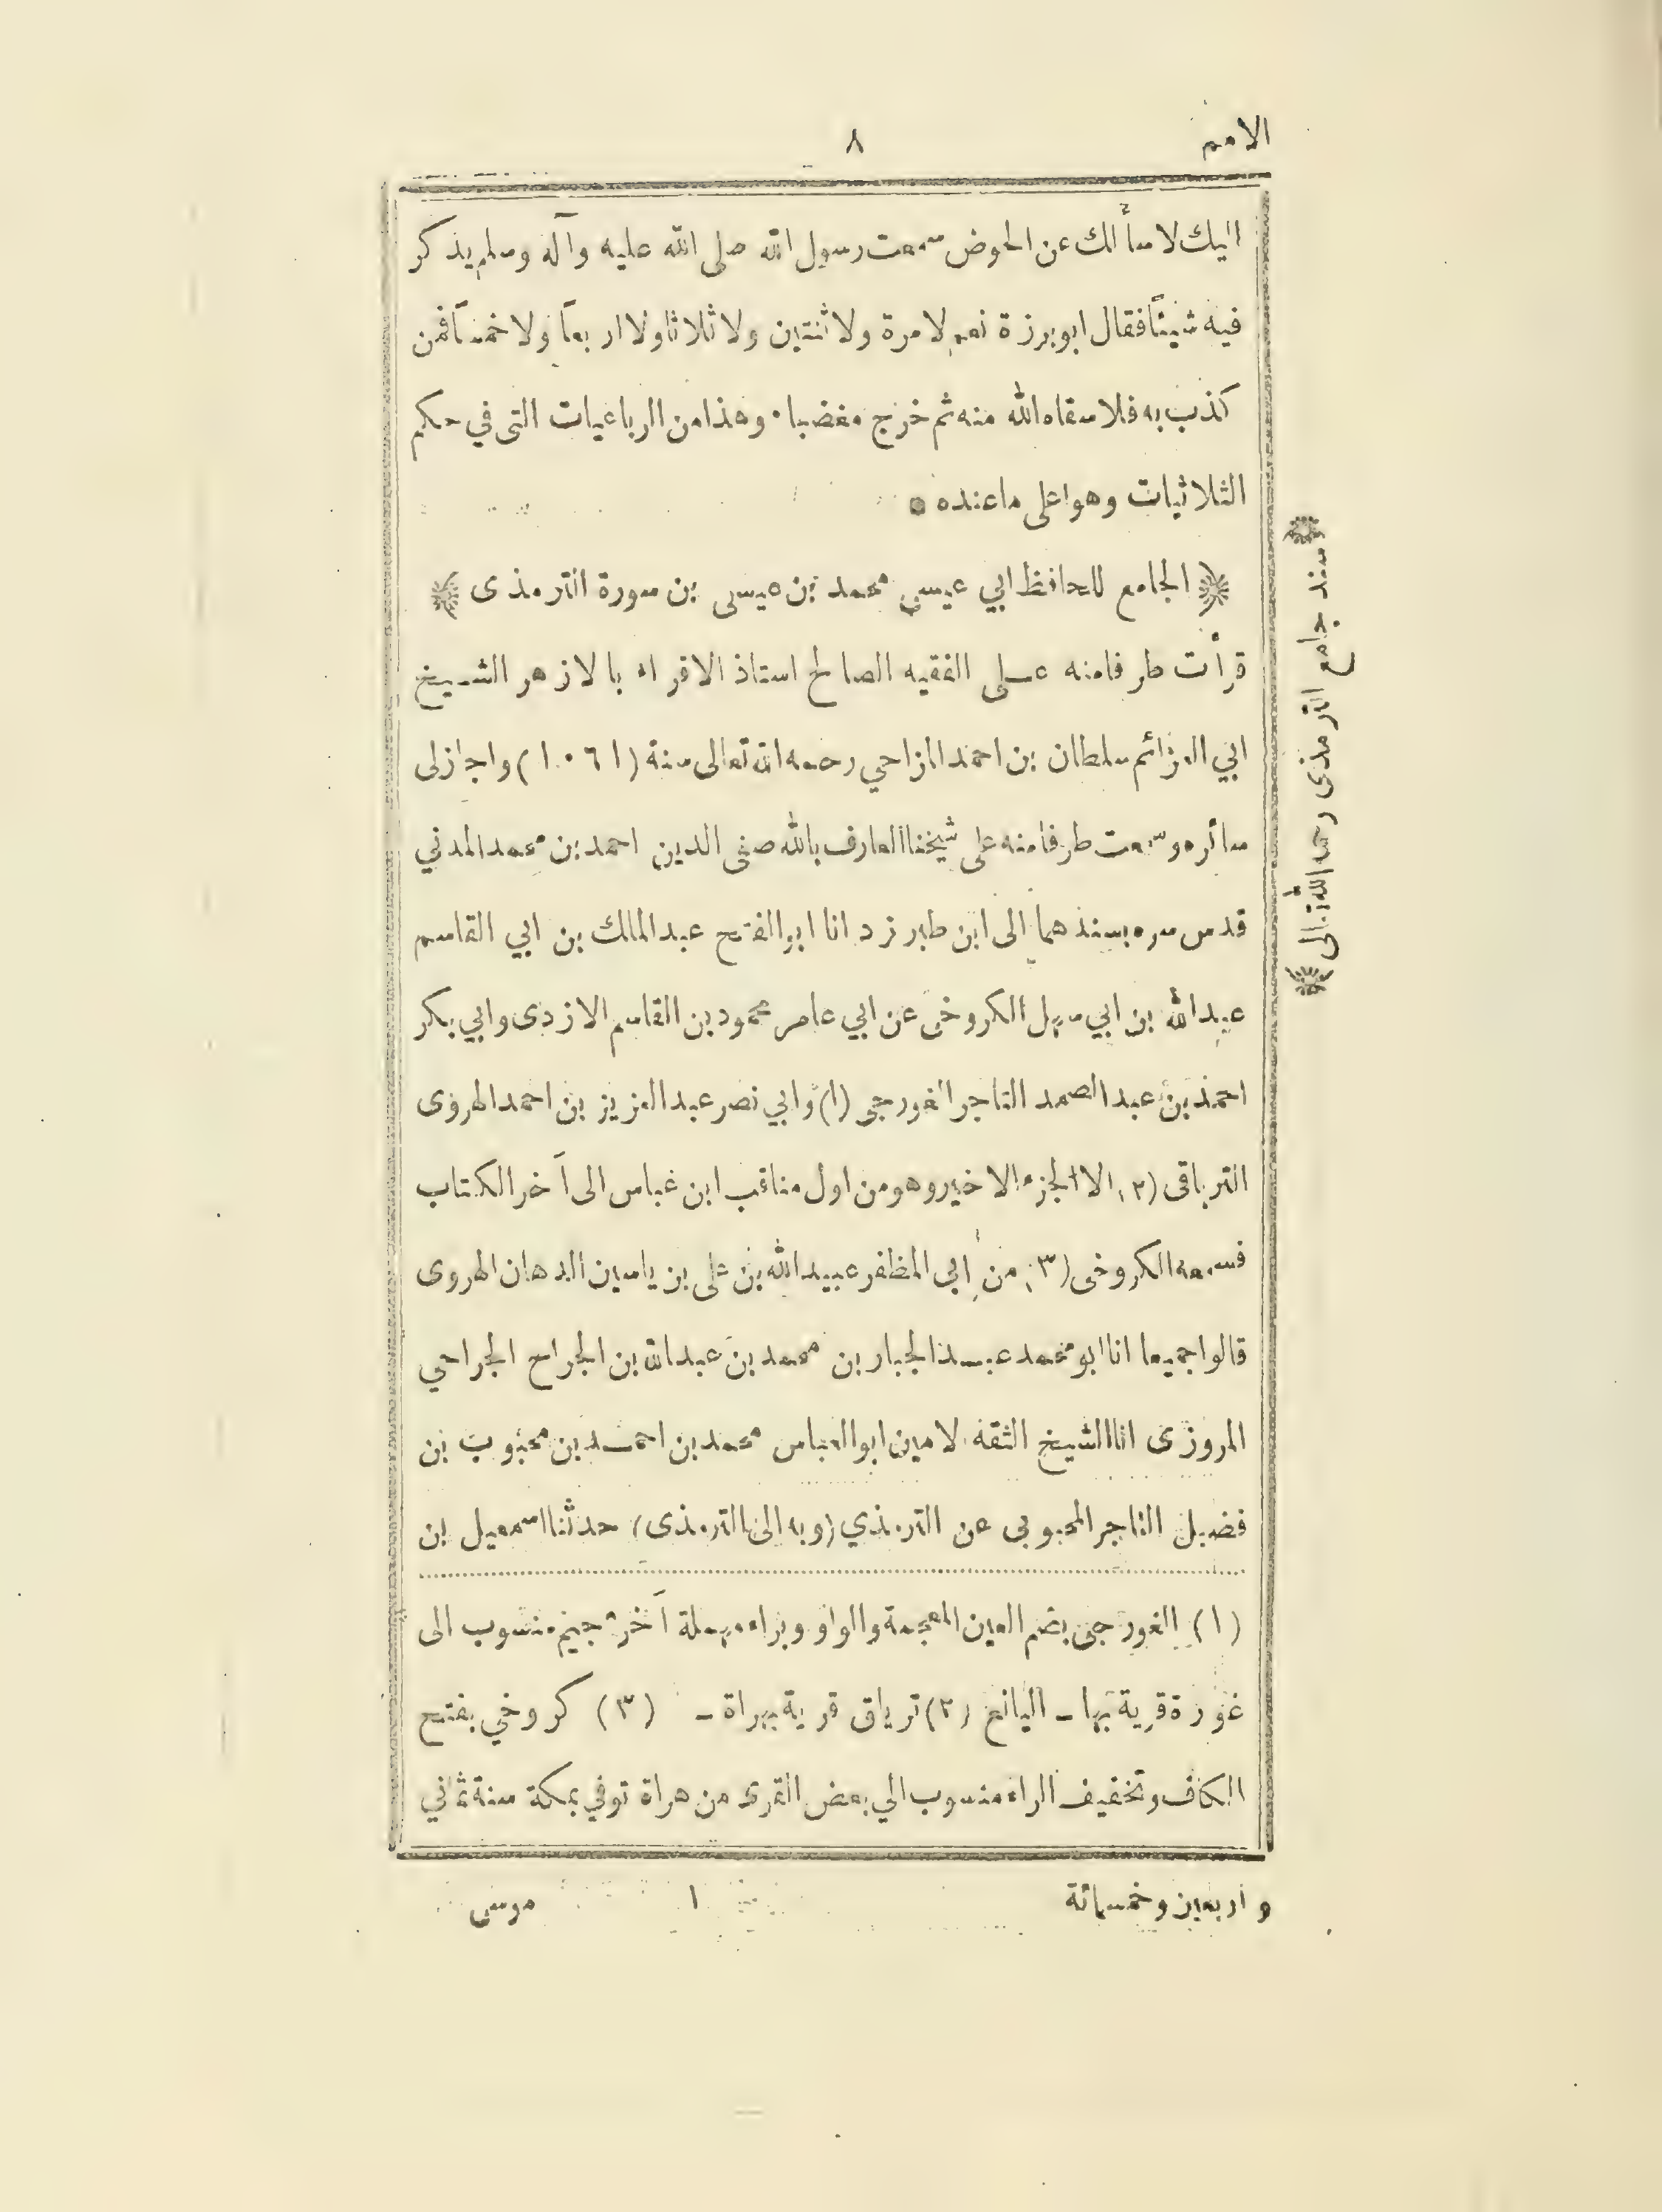 الامم
٨
اليك لاسألك عن الحوض سمعت رسول الله صلى الله عليه وآله وسلم يذكر
فيه شيئًا فقال ابو برزة نعم لا مرة ولا ثنتين ولا ثلاثا ولا اربعًا ولا خمسًا فمن
كذب به فلا سقاه الله منه ثم خرج مغضبا · وهذا من الرباعيات التى في حكم
الثلاثيات وهو اعلى ما عنده
﴿ الجامع للحافظ ابي عيسى محمد بن عيسى بن سورة الترمذى ﴾
قرأت طرفا منه على الفقيه الصالح استاذ الاقراء بالازهر الشيخ
ابي العزائم سلطان بن احمد المزاحي رحمه الله تعالى سنة (١٠٦١) واجاز لى
سائره وسمعت طرفا منه على شيخنا العارف بالله صفى الدين احمد بن محمد المدني
قدس سره بسندهما الى ابن طبرزد انا ابو الفتح عبد الملك بن ابي القاسم
عبد الله بن ابي سهل الكروخى عن ابي عامر محمود بن القاسم الازدى وابي بكر
احمد بن عبد الصمد التاجر الغورجى (١) وابي نصر عبد العزيز بن احمد الهروى
الترياقى (٢) الا الجزء الاخير وهو من اول مناقب ابن عباس الى آخر الكتاب
فسمعه الكروخى (٣) من ابي المظفر عبيد الله بن على بن ياسين الدهان الهروى
قالوا جميعا انا ابو محمد عبد الجبار بن محمد بن عبد الله بن الجراح الجراحي
المروزى انا الشيخ الثقة الامين ابو العباس محمد بن احمد بن محبوب بن
فضيل التاجر المحبوبى عن الترمذي (وبه الى الترمذى) حدثنا اسمعيل بن
(١) الغورجى بضم الغين المعجمة والواو وبراء مهملة آخره جيم منسوب الى
غورة قرية بها ـ اليانع (٢) ترياق قرية بهراة ـ (٣) كروخي بفتح
الكاف وتخفيف الراء منسوب الي بعض القرى من هراة توفي بمكة سنة ثماني
و اربعين وخمسمائة
١
موسى
﴿ سند جامع الترمذى رحمه الله تعالى ﴾